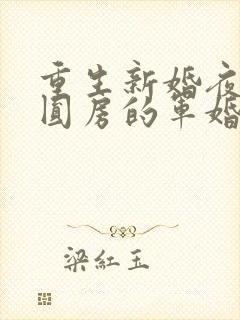 重生新婚夜
圆房的军婚
梁红玉